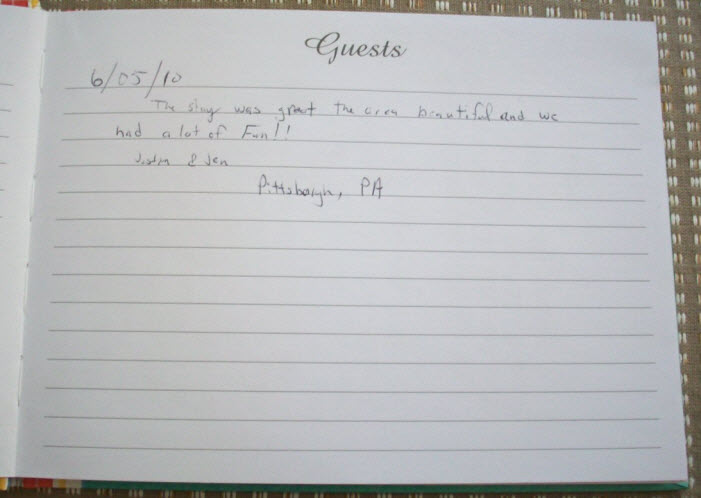 Guests
6/05/10
The stay was great the area beautiful and we
had a lot of Fun!!
Justin & Jen
Pittsburgh, PA